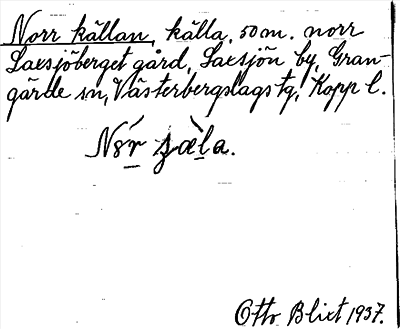 Norr källan, källa, 50 m. norr
Laxsjöberget gård, Laxsjön by, Gran-
gärde sn, Västerbergslags tg, Kopp l.
Otto Blixt 1937.